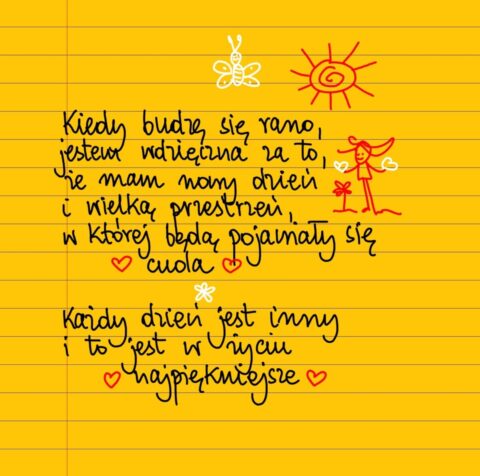 Kiedy budzę się rano,
jestem wdzięczna za to,
że mam nowy dzień
i wielką przestrzeń,
w której będą pojawiały się
cuda
Każdy dzień jest inny
i to jest w życiu
najpiękniejsze